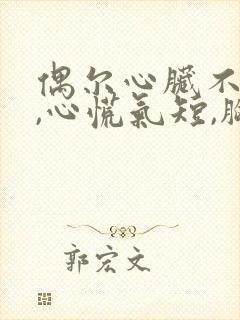 偶尔心臟不
,心慌氣短,胸
郭宏文